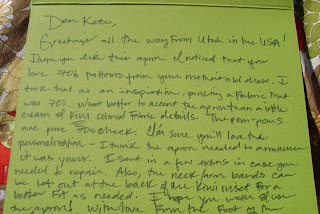 Dear Kate,
Greetings all the way from Utah in the USA!
I hope you like this apron. I noticed that you
love 70's patterns from your mother's old dress. I
took that as an inspiration, picking a fabric that
was 70's. What better to accent the apron than a little
cream & kiwi colored fabric details. The pom-poms
are pure 70s shock. I'm sure you'll love the
personalization - I think the apron needed to announce
it was yours. I sent in a few extras in case you
needed to repair. Also, the neck/arm bands can
be let out at the back of the kiwi inset for a
better fit as needed. I hope you wear & use
the apron! With love from the foot of the